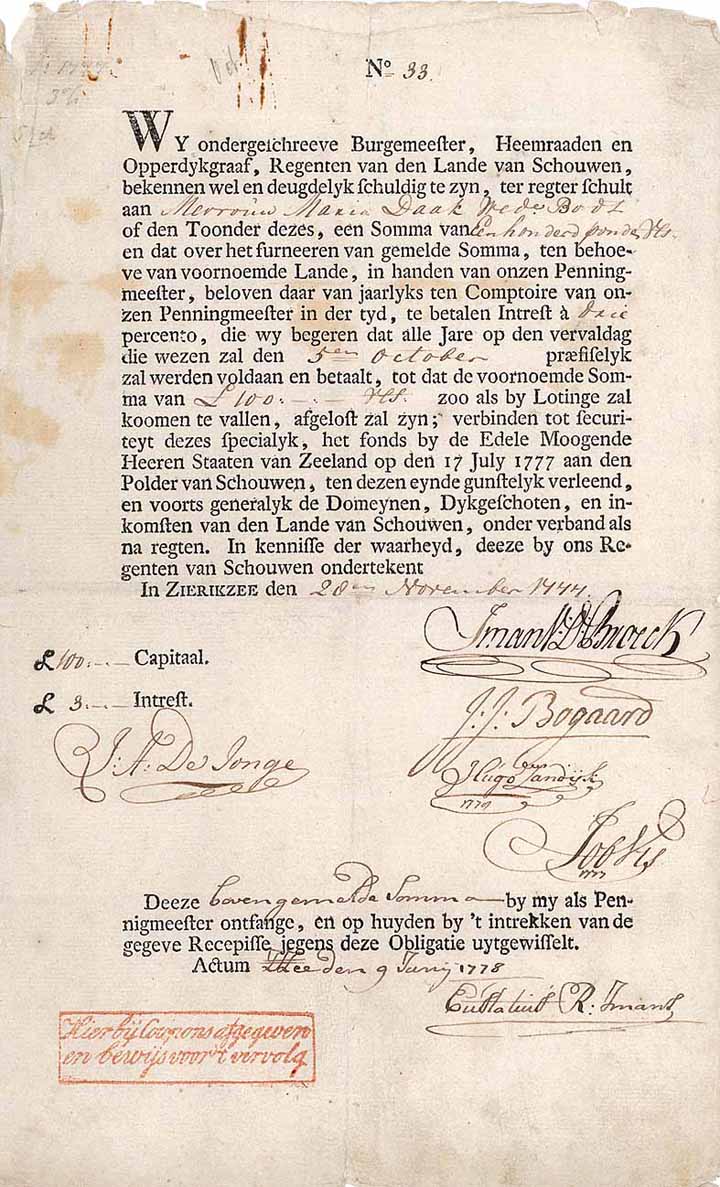 Nº 33.
WY ondergeſchreeve Burgemeeſter, Heemraaden en
Opperdykgraaf, Regenten van den Lande van Schouwen,
bekennen wel en deugdelyk ſchuldig te zyn, ter regter ſchult
aan Mevrouw Maria Daak Wedᵉ Bodt
of den Toonder dezes, een Somma van Een honderd ponden Vls.
en dat over het furneeren van gemelde Somma, ten behoe-
ve van voornoemde Lande, in handen van onzen Penning-
meeſter, beloven daar van jaarlyks ten Comptoire van on-
zen Penningmeeſter in der tyd, te betalen Intreſt à drie
percento, die wy begeren dat alle Jare op den vervaldag
die wezen zal den 5en October præfiſelyk
zal werden voldaan en betaalt, tot dat de voornoemde Som-
ma van £ 100:-.- Vls. zoo als by Lotinge zal
koomen te vallen, afgeloſt zal zyn; verbinden tot ſecuri-
teyt dezes ſpecialyk, het fonds by de Edele Moogende
Heeren Staaten van Zeeland op den 17 July 1777 aan den
Polder van Schouwen, ten dezen eynde gunſtelyk verleend,
en voorts generalyk de Domeynen, Dykgeſchoten, en in-
komſten van den Lande van Schouwen, onder verband als
na regten. In kenniſſe der waarheyd, deeze by ons Re-
genten van Schouwen ondertekent
In ZIERIKZEE den 28en November 1777.
£ 100:-.- Capitaal.
£ 3.-.- Intreſt.
J: J: Bogaard
J: A: De Jonge
1779
Job Vis
1777
Deeze bovengemelde Somma by my als Pen-
nigmeeſter ontfange, en op huyden by 't intrekken van de
gegeve Recepiſſe jegens deze Obligatie uytgewiſſelt.
Actum den 9 Junij 1778
R: Imans
Hierbij Coupons afgegeven
en bewijs voor 't vervolg